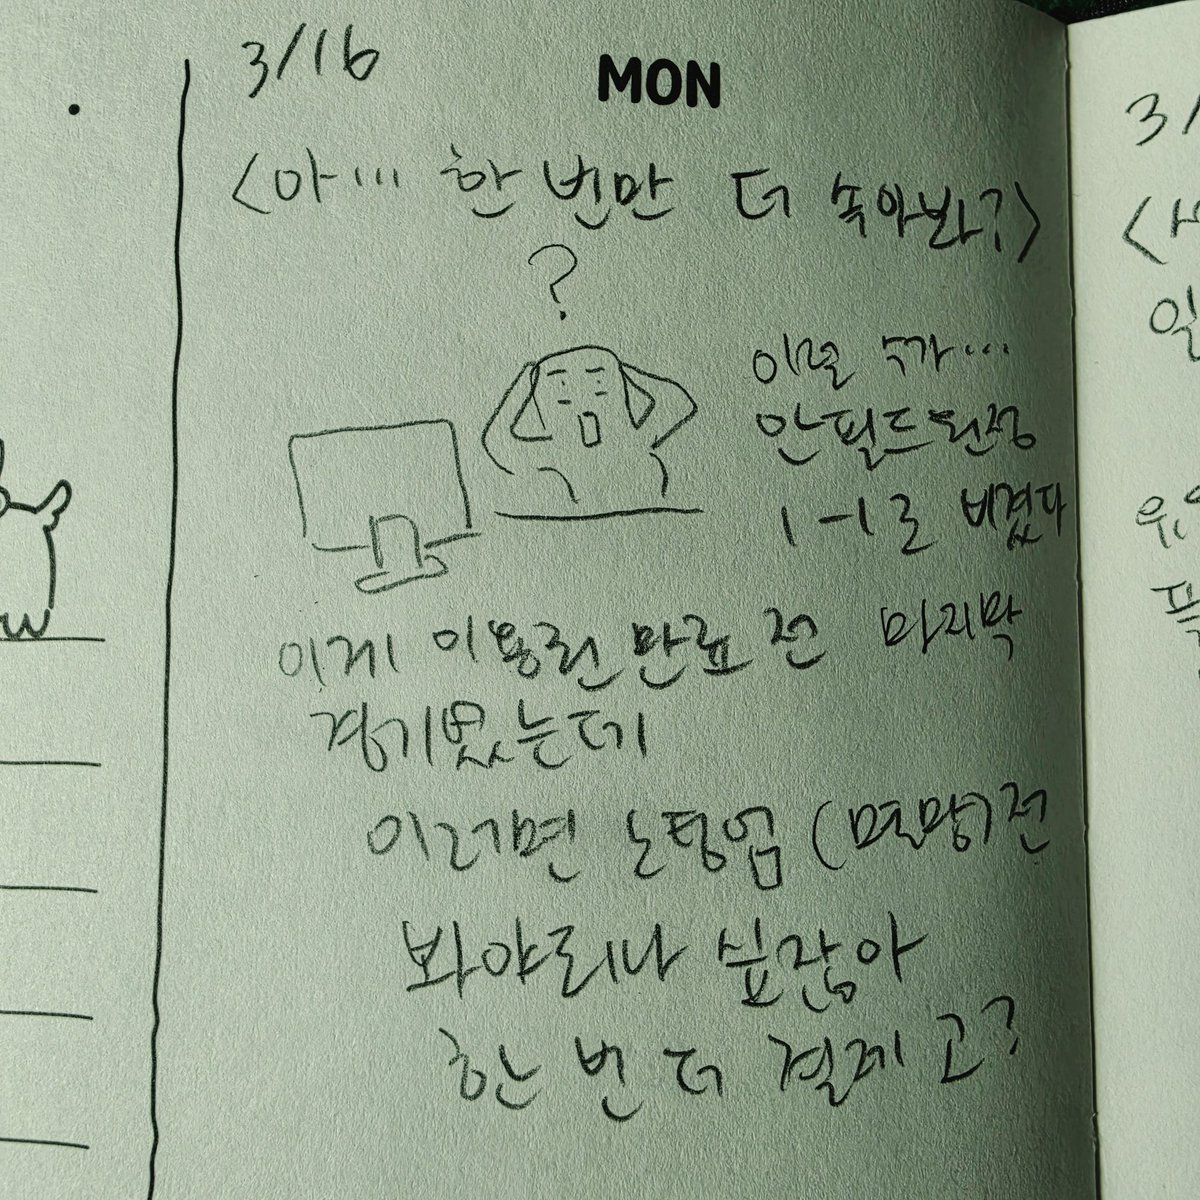 3/16
MON
<아... 한 번만 더 속아봐?>
?
이럴 수가...
안필드원정
1-1로 비겼다
이게 이용권 만료 전 마지막
경기였는데
이러면 노팅엄 (멸망)전
봐야되나 싶잖아
한 번 더 결제 고?
3/
<
일